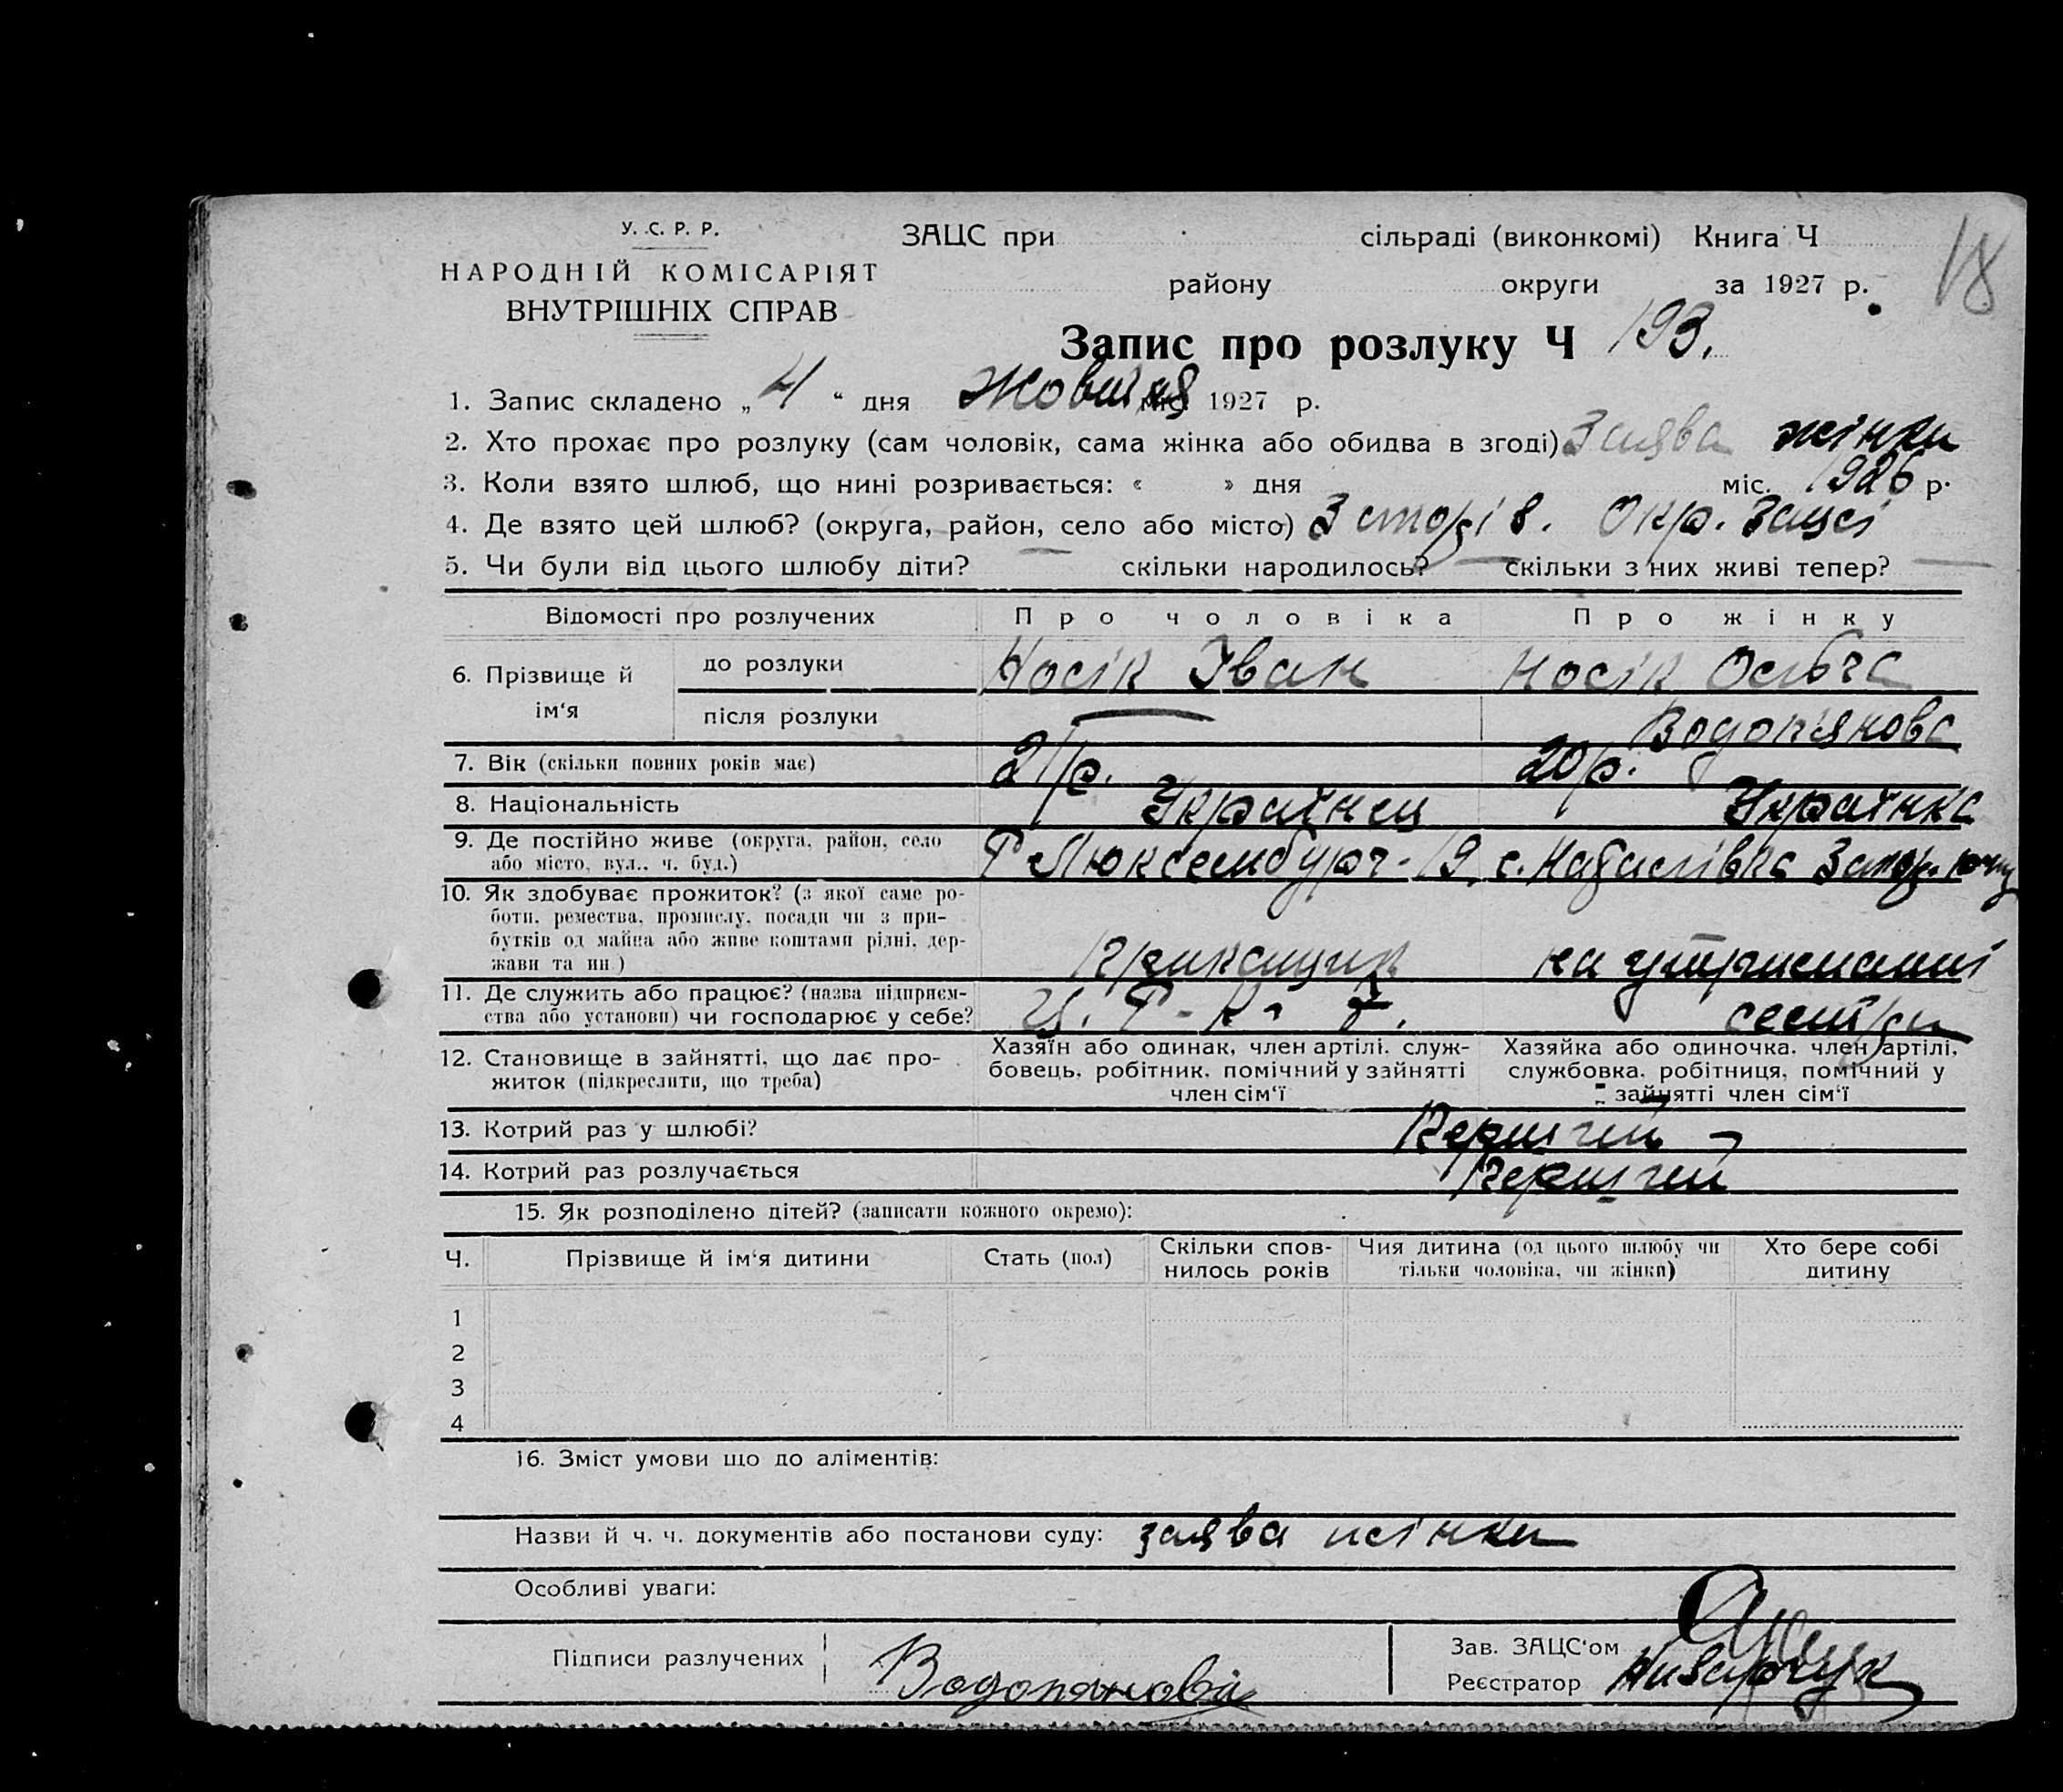 У. С. Р. Р.
НАРОДНІЙ КОМІСАРІЯТ
ВНУТРІШНІХ СПРАВ
ЗАЦС при сільраді (виконкомі) Книга Ч
району округи за 1927 р.
18
Запис про розлуку Ч 193.
1. Запис складено „ 4 “ дня Жовтня міс. 1927 р.
2. Хто прохає про розлуку (сам чоловік, сама жінка або обидва в згоді) Заява жінки
3. Коли взято шлюб, що нині розривається: « » дня міс. 1926 р.
4. Де взято цей шлюб? (округа, район, село або місто) Окр. Зацсі
5. Чи були від цього шлюбу діти? — скільки народилось? — скільки з них живі тепер? —
Відомості про розлучених Про чоловіка Про жінку
6. Прізвище й ім‘я до розлуки Носік Іван Носік Ольга
після розлуки — Водоп'янова
7. Вік (скільки повних років має) 21 р. 20 р.
8. Національність Українец Українка
9. Де постійно живе (округа, район, село
або місто, вул., ч. буд.) Р Люксембург-19. с. Наталівка
10. Як здобуває прожиток? (з якої саме ро-
боти, ремества, промислу, посади чи з при-
бутків од майна або живе коштами рідні, дер-
жави та ин.) Прикащик на утриманні
11. Де служить або працює? (назва підприєм-
ства або установи) чи господарює у себе? Ц. Р. К. сестри
12. Становище в зайнятті, що дає про-
житок (підкреслити, що треба)
Хазяїн або одинак, член артілі, служ-
бовець, робітник, помічний у зайнятті
член сім‘ї
Хазяйка або одиночка, член артілі,
службовка, робітниця, помічний у
зайнятті член сім‘ї
13. Котрий раз у шлюбі? Перший
14. Котрий раз розлучається Перший
15. Як розподілено дітей? (записати кожного окремо):
Ч. Прізвище й ім‘я дитини Стать (пол) Скільки спов-
нилось років Чия дитина (од цього шлюбу чи
тільки чоловіка, чи жінки) Хто бере собі
дитину
1
2
3
4
16. Зміст умови що до аліментів:
Назви й ч. ч. документів або постанови суду: заява жінки
Особливі уваги:
Підписи разлучених Водопянова
Зав. ЗАЦС‘ом
Реєстратор